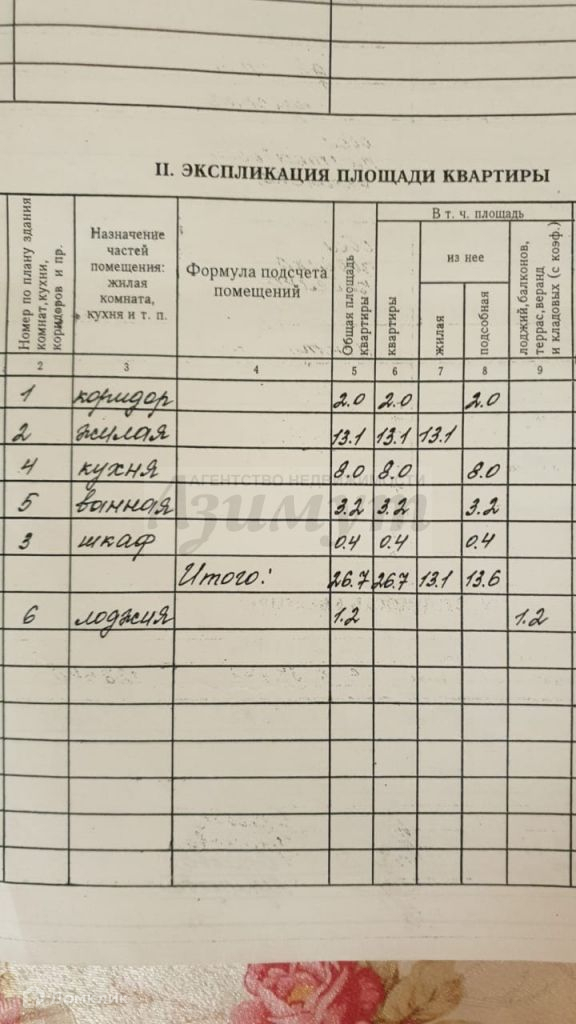 II. ЭКСПЛИКАЦИЯ ПЛОЩАДИ КВАРТИРЫ
Номер по плану здания комнат, кухни, коридоров и пр.
Назначение
частей
помещения:
жилая
комната,
кухня и т. п.
Формула подсчета
помещений
Общая площадь
квартиры
В т. ч. площадь
квартиры
из нее
жилая
подсобная
лоджий, балконов,
террас, веранд
и кладовых (с коэф.)
2 3 4 5 6 7 8 9
1 коридор 2.0 2.0 2.0
2 жилая 13.1 13.1 13.1
4 кухня 8.0 8.0 8.0
АГЕНТСТВО НЕДВИЖИМОСТИ
Азимут
5 ванная 3.2 3.2 3.2
3 шкаф 0.4 0.4 0.4
Итого: 26.7 26.7 13.1 13.6
6 лоджия 1.2 1.2
Домклик